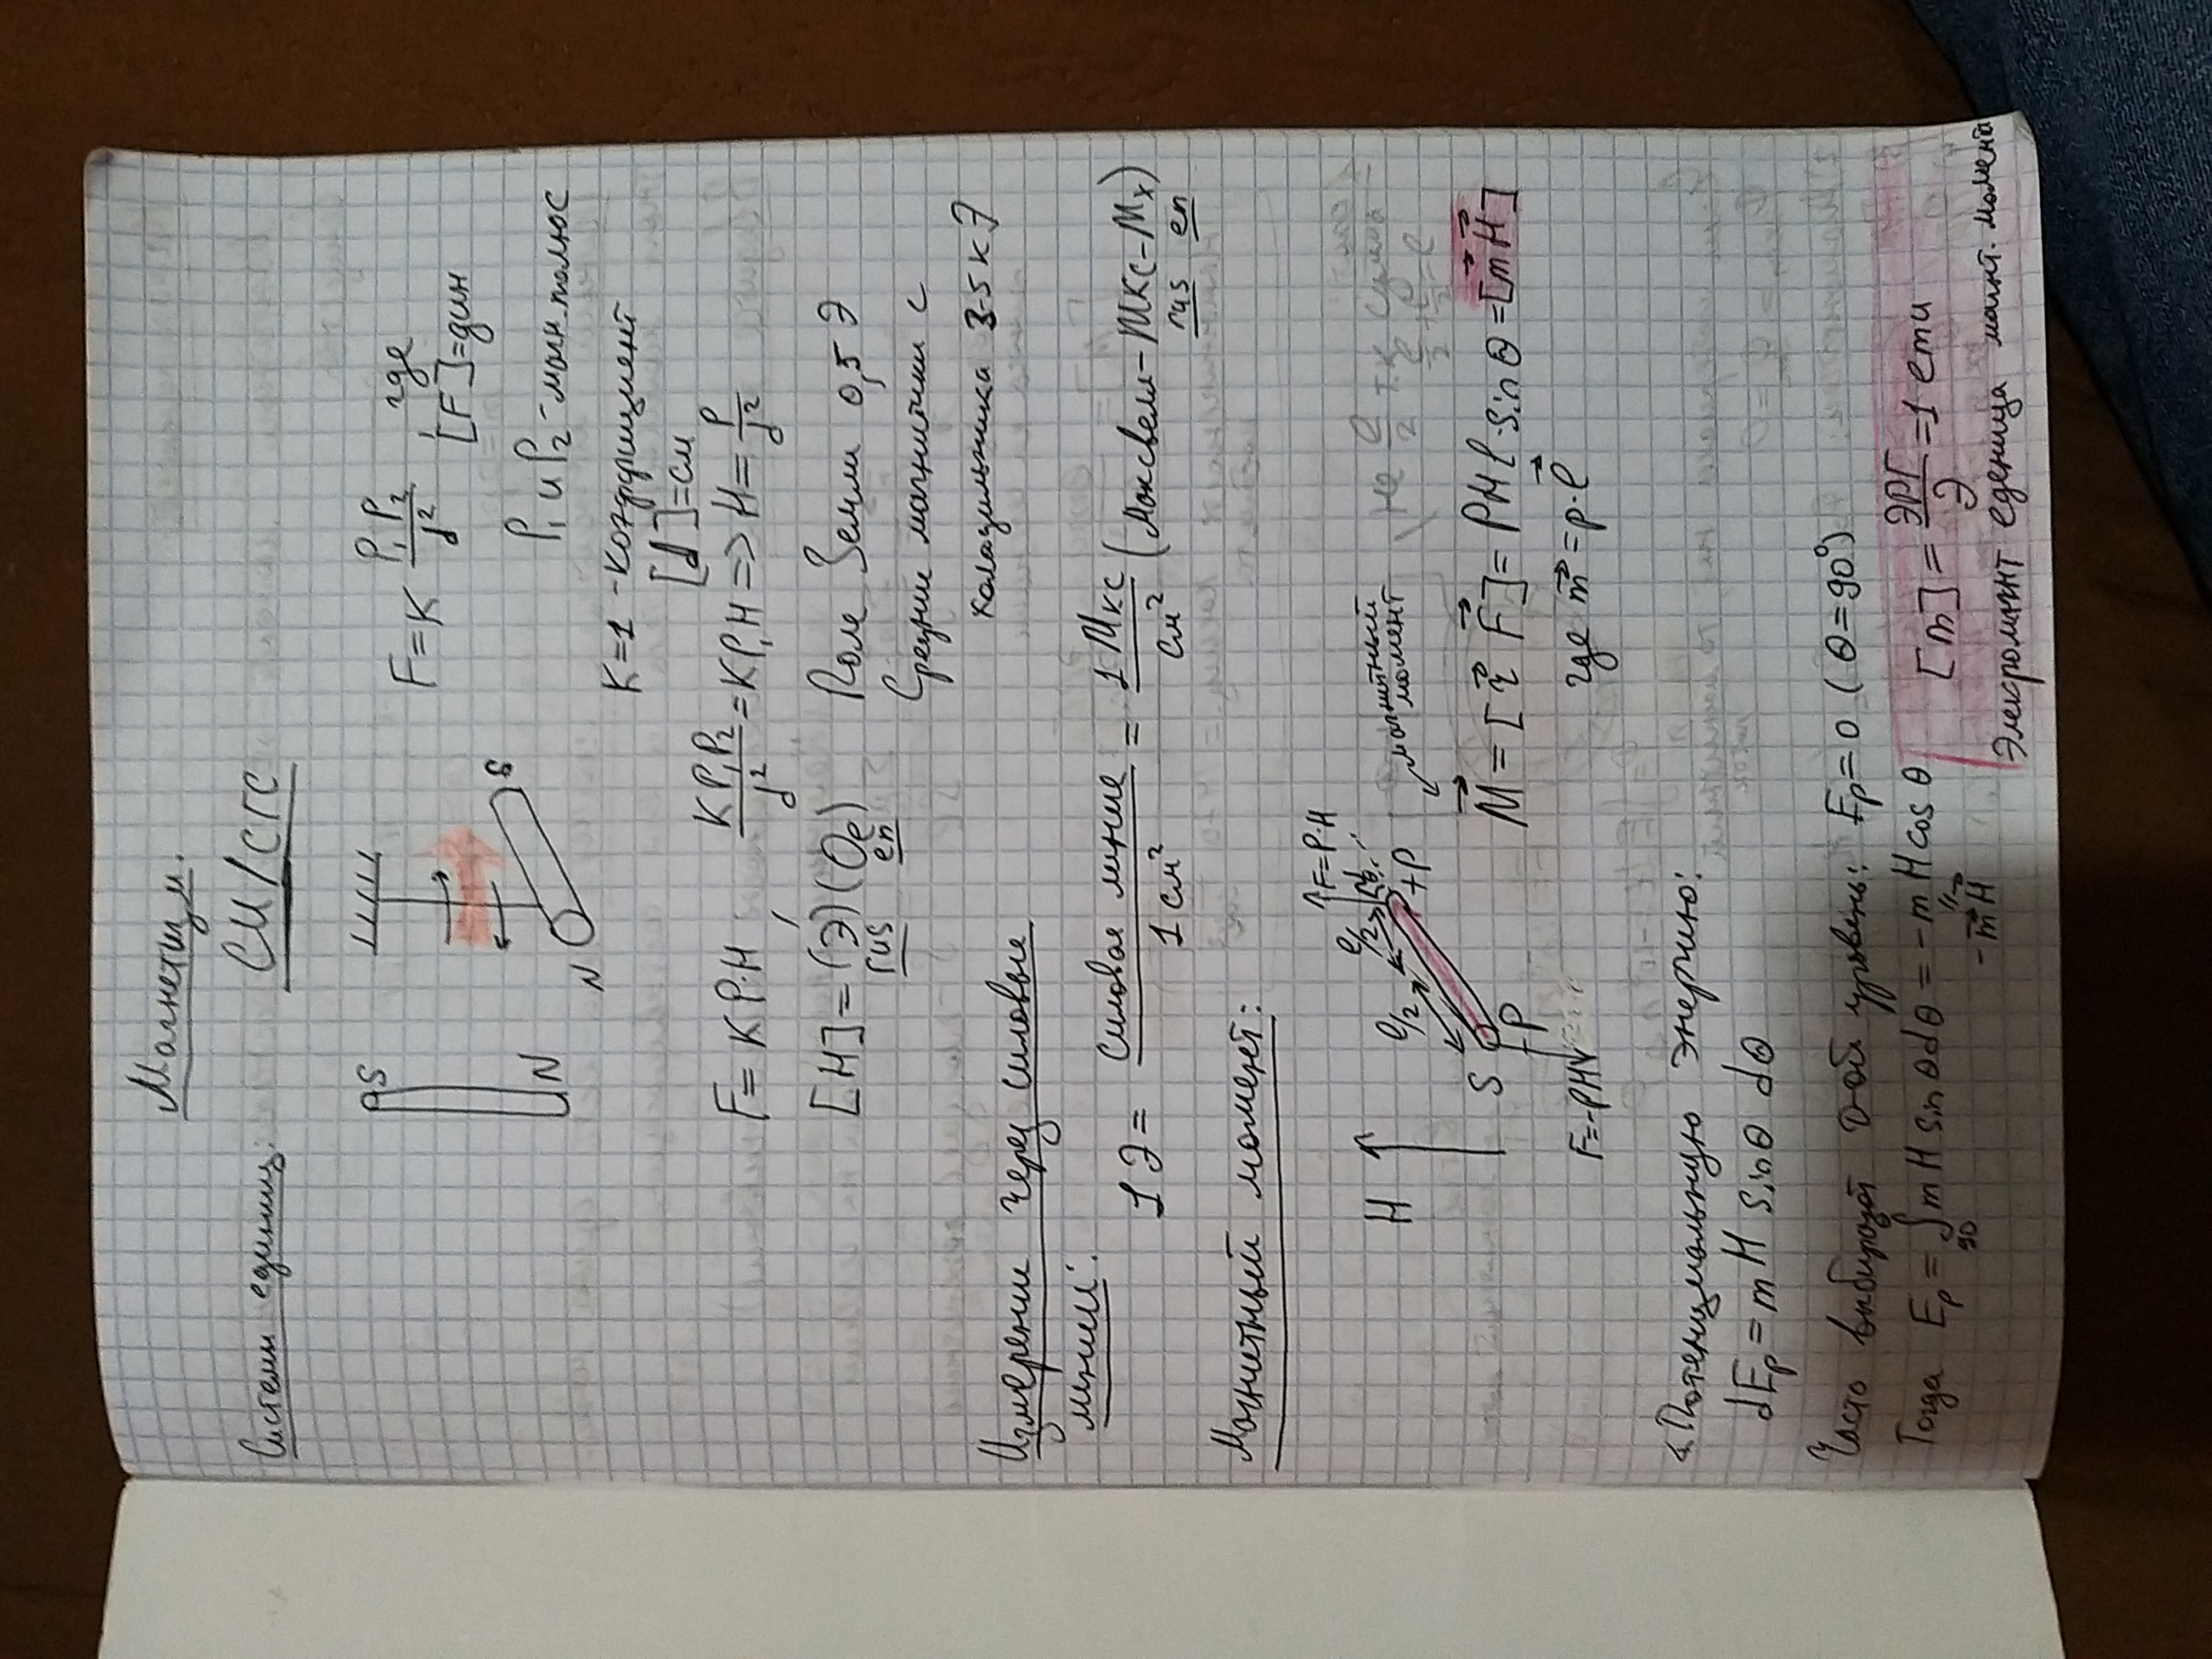 Магнетизм.
Системы единиц: СИ/СГС
S
N
S
N
F = K P₁P₂/d² , где
[F]=дин
P₁ и P₂ - магн. полюс
K=1 - коэффициент
[d]=см
F = K P·H , K P₁P₂/d² = KP₁H => H = P/d²
[H] = (Э) (Oe) Поле Земли 0,5 Э
rus en
Средние магнитики с
холадильника 3-5 кЭ
Измерение через силовые
линии:
1 Э = силовая линие/1 см² = 1 Мкс/см² (Максвелл - Мкс - Mx)
rus en
Магнитный момент:
F=P·H
H
l/2
l/2
θ
+P
S
-P
F=-PH
магнитный
момент
M⃗ = [r⃗ F⃗] = PHl·sinθ = [m⃗ H⃗]
где m⃗ = p·l⃗
Потенциальную энергию:
dEp = mH sinθ dθ
Часто выбирают 0-ой уровень: Ep = 0 (θ = 90°)
Тогда Ep = ∫₉₀ mH sinθdθ = -mH cosθ
-m⃗H⃗
[m] = ЭРГ/Э = 1 emu
Элекромагнт еденица магнт. момента